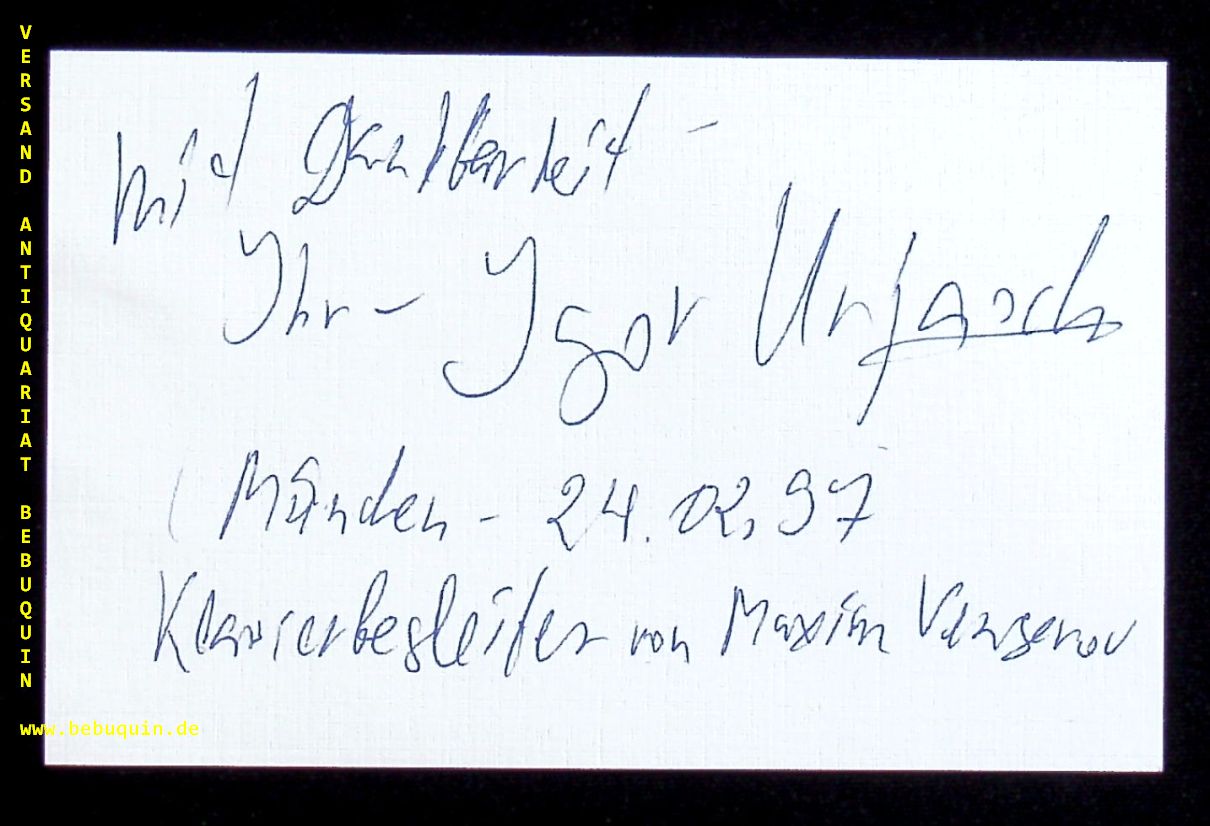 VERSAND ANTIQUARIAT BEBUQUIN
Mit Dankbarkeit -
Ihr - Igor Urjasch
(München - 24.02.97
Klavierbegleiter von Maxim Vengerov
www.bebuquin.de